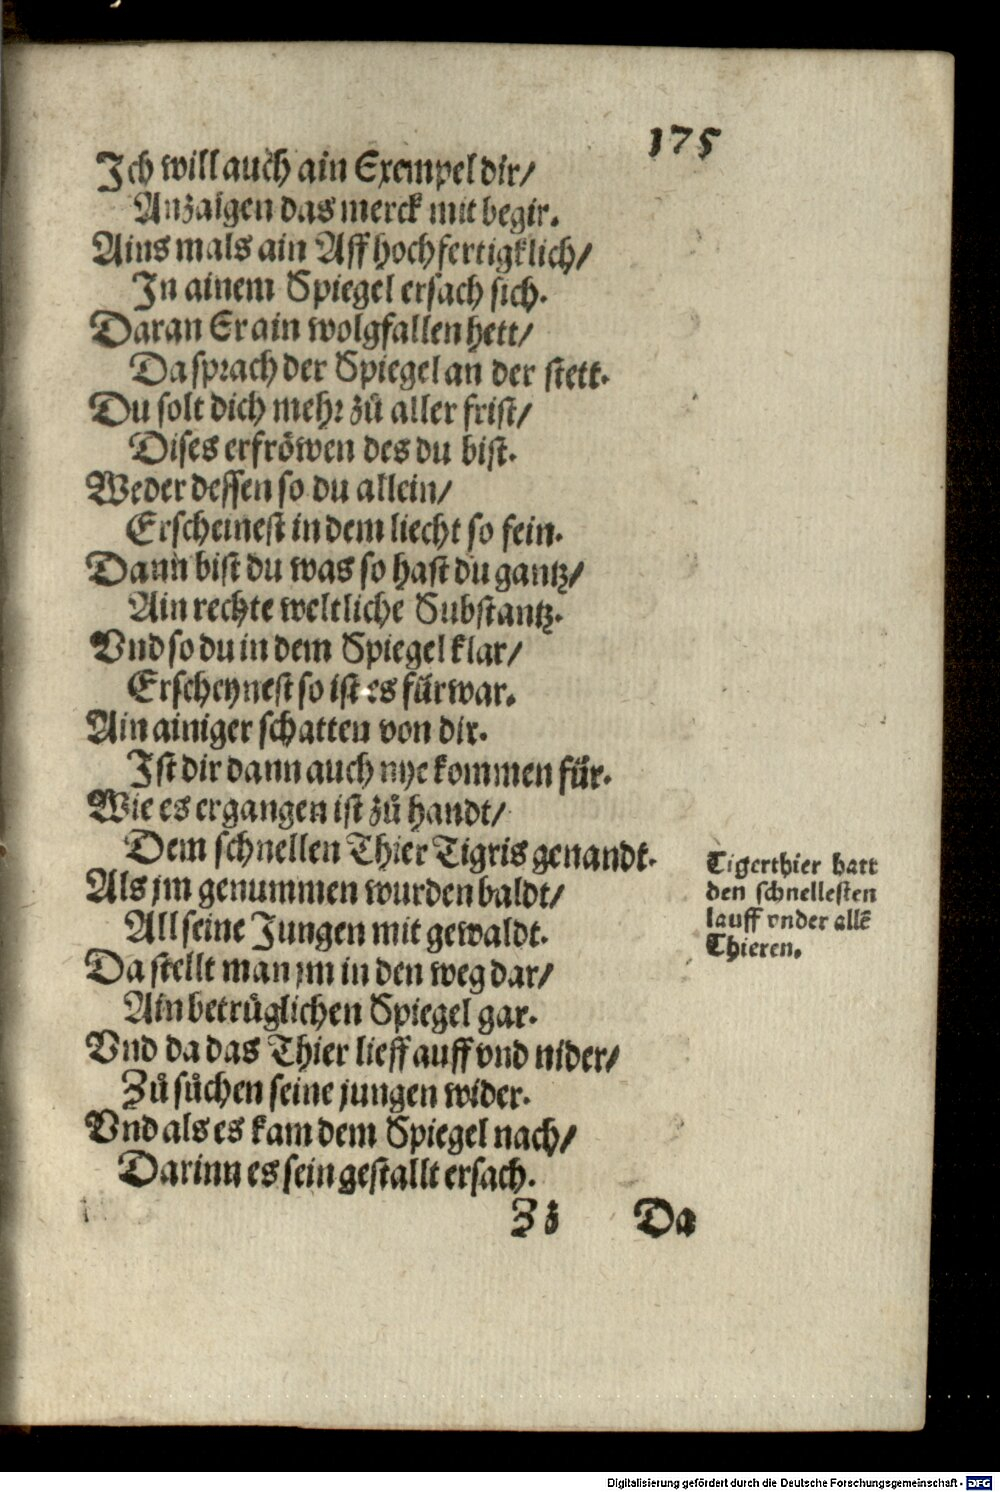 175
Ich will auch ain Exempel dir/
Anzaigen das merck mit begir.
Ains mals ain Aff hochfertigklich/
In ainem Spiegel ersach sich.
Daran Er ain wolgfallen hett/
Da sprach der Spiegel an der stett.
Du solt dich mehr zů aller frist/
Dises erfröwen des du bist.
Weder dessen so du allein/
Erscheinest in dem liecht so fein.
Dann bist du was so hast du gantz/
Ain rechte weltliche Substantz.
Vnd so du in dem Spiegel klar/
Erscheynest so ist es fürwar.
Ain ainiger schatten von dir.
Ist dir dann auch nye kommen für.
Wie es ergangen ist zů handt/
Dem schnellen Thier Tigris genandt.
Als jm genummen wurden baldt/
All seine Jungen mit gewaldt.
Da stellt man jm in den weg dar/
Ain betrüglichen Spiegel gar.
Vnd da das Thier lieff auff vnd nider/
Zů sůchen seine jungen wider.
Vnd als es kam dem Spiegel nach/
Darinn es sein gestallt ersach.
Tigerthier hatt
den schnellesten
lauff vnder allē
Thieren.
Zz Da
Digitalisierung gefördert durch die Deutsche Forschungsgemeinschaft - DFG